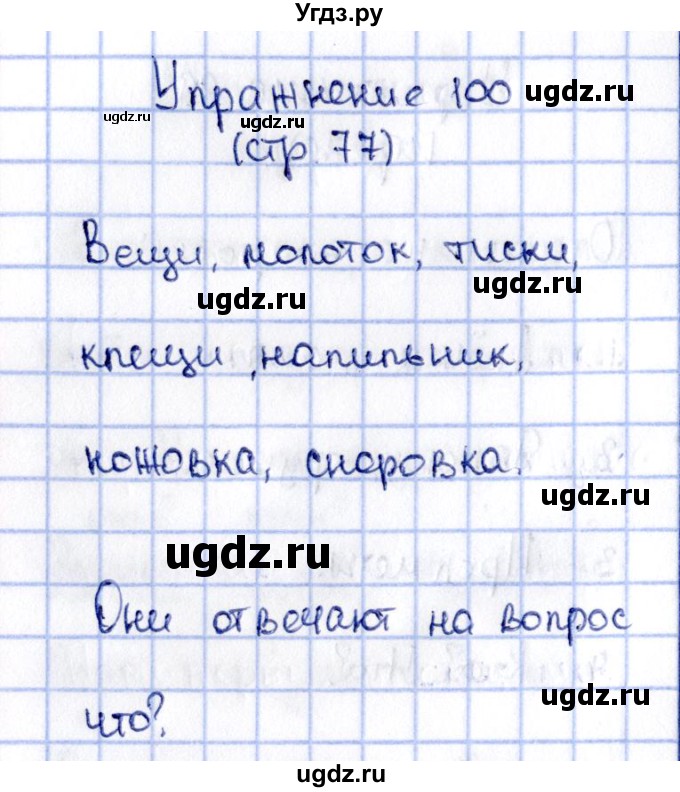 Угдз.ру
Упражнение 100 ugdz.ru
ugdz.ru ugdz.ru
(стр 77)
Вещи, молоток, тиски,
ugdz.ru ugdz.ru
клещи, напильник,
ножовка, сноровка.
ugdz.ru
ugdz.ru
Они отвечают на вопрос
ugdz.ru
что?
ugdz.ru